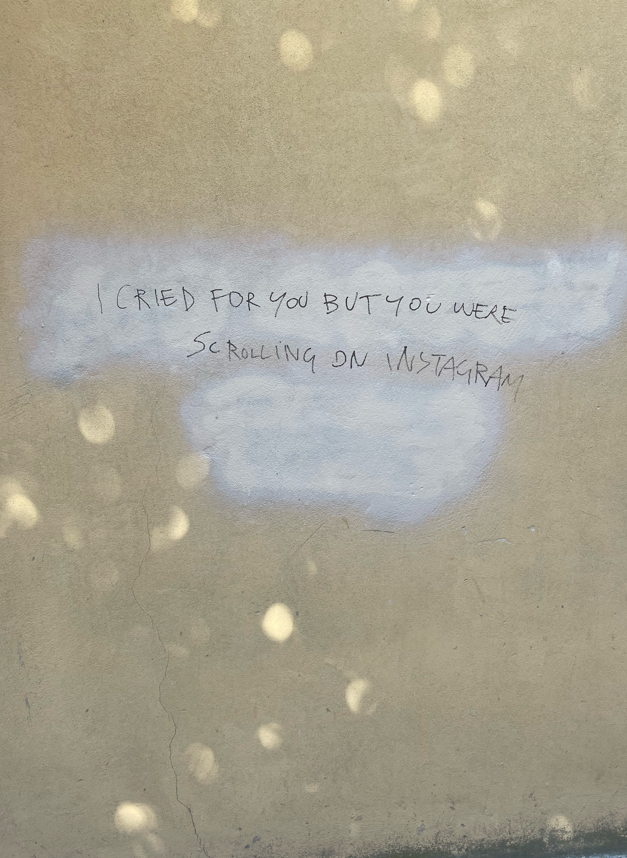 I CRIED FOR YOU BUT YOU WERE
SCROLLING ON INSTAGRAM